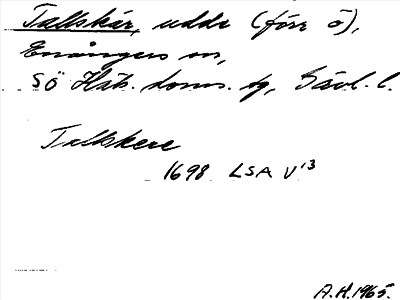 Tallskär, udde (förr ö),
Enångers sn,
SÖ Häls. doms. sg, Gävl. l.
Tallskere
1698 LSA V 13
A.H. 1965.